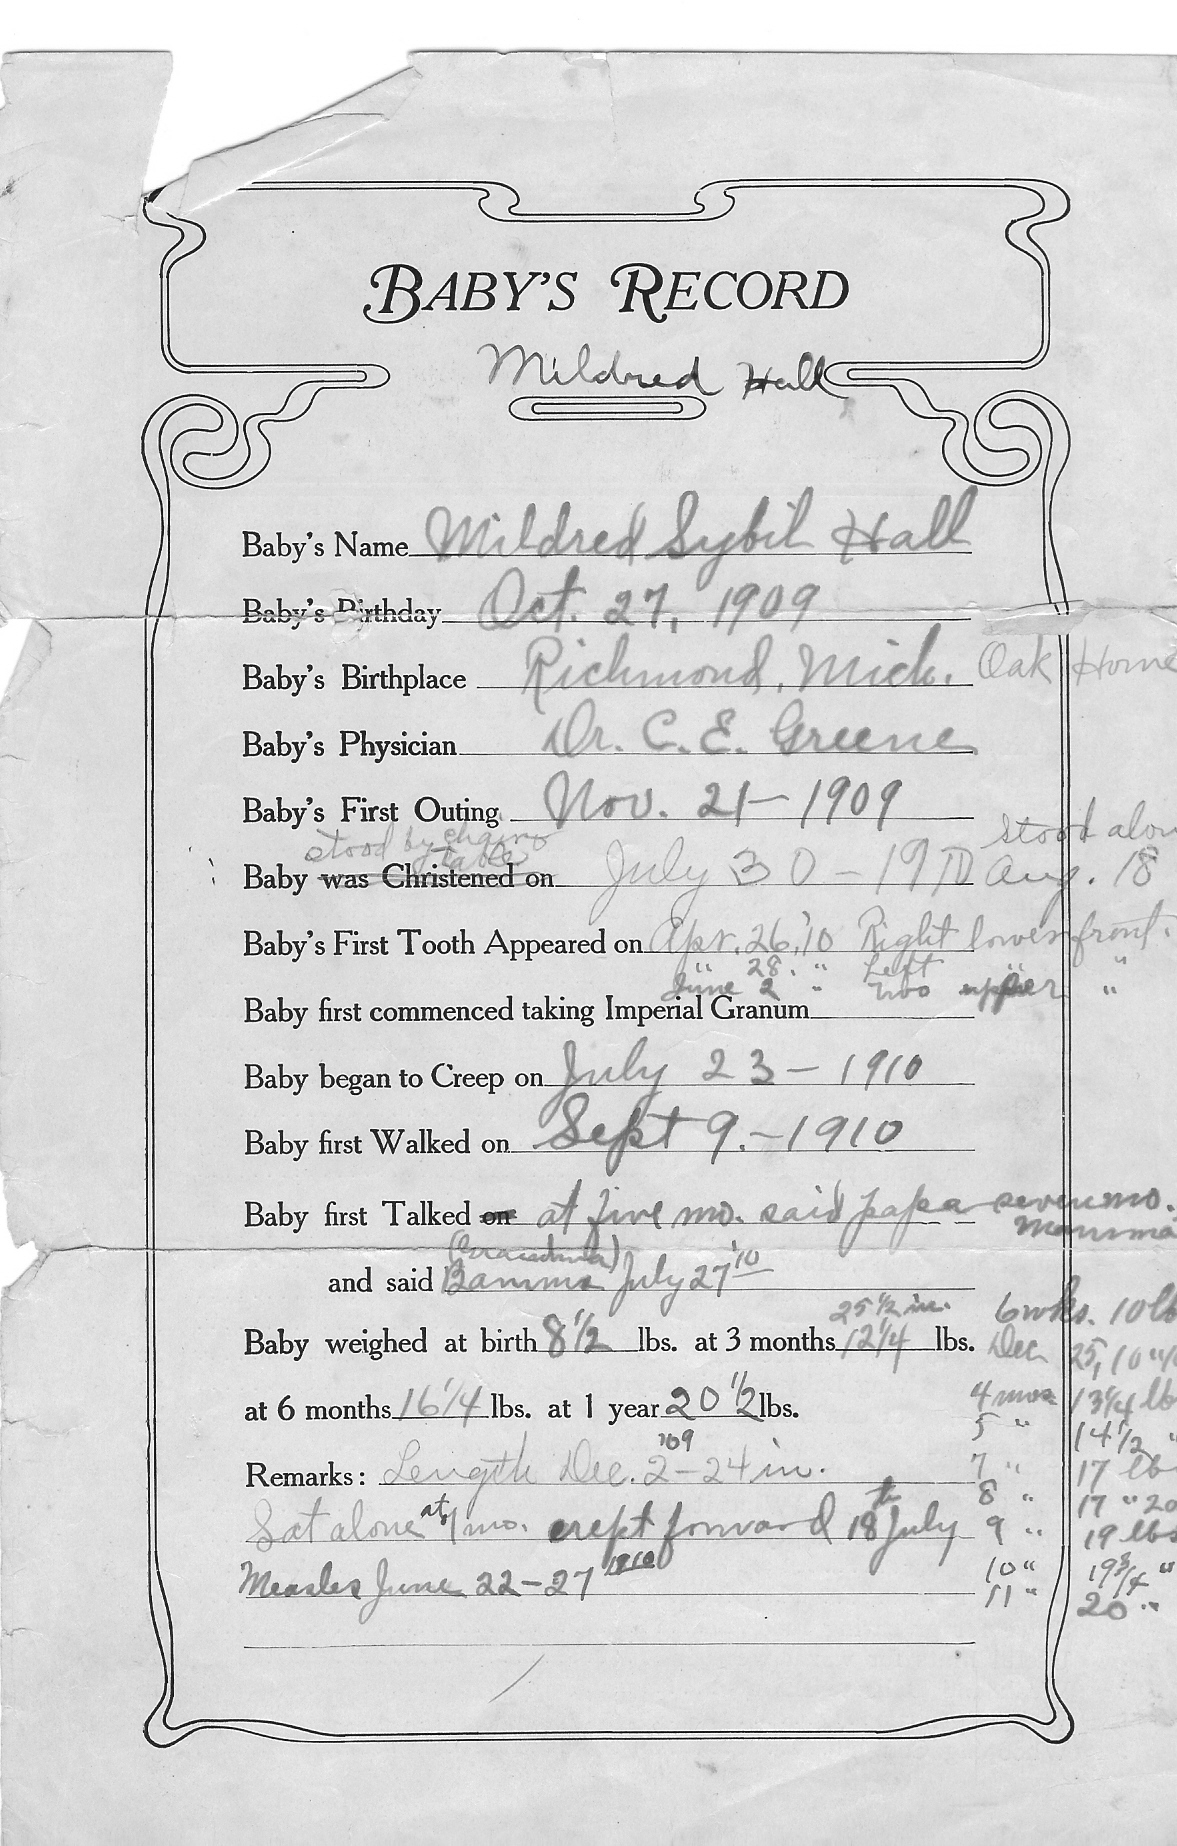 BABY'S RECORD
Mildred Hall
Baby's Name Mildred Sybil Hall
Baby's Birthday Oct. 27, 1909
Baby's Birthplace Richmond, Mich. Oak Home
Baby's Physician Dr. C. E. Greene
Baby's First Outing Nov. 21 - 1909
stood by chairs
table
stood alon
Baby was Christened on July 30 - 1910 Aug. 18
Baby's First Tooth Appeared on Apr. 26, '10 Right lower front.
" 28. " Left " "
June 2 " two upper "
Baby first commenced taking Imperial Granum
Baby began to Creep on July 23 - 1910
Baby first Walked on Sept 9. - 1910
Baby first Talked on at five mo. said papa seven mo.
Mamma
(Grandma)
and said Bamma July 27 '10
25 1/2 in. 6 wks. 10 lb
Baby weighed at birth 8 1/2 lbs. at 3 months 12 1/4 lbs. Dec 25, 10
4 mos 13 1/4 lb
at 6 months 16 1/4 lbs. at 1 year 20 1/2 lbs.
5 " 14 1/2 "
'09
Remarks: Length Dec. 2 - 24 in. 7 " 17 lb
8 " 17 " 20
Sat alone at 7 mo. crept forward 18th July 9 " 19 lbs
Measles June 22-27 1910 10 " 19 3/4 "
11 " 20 "